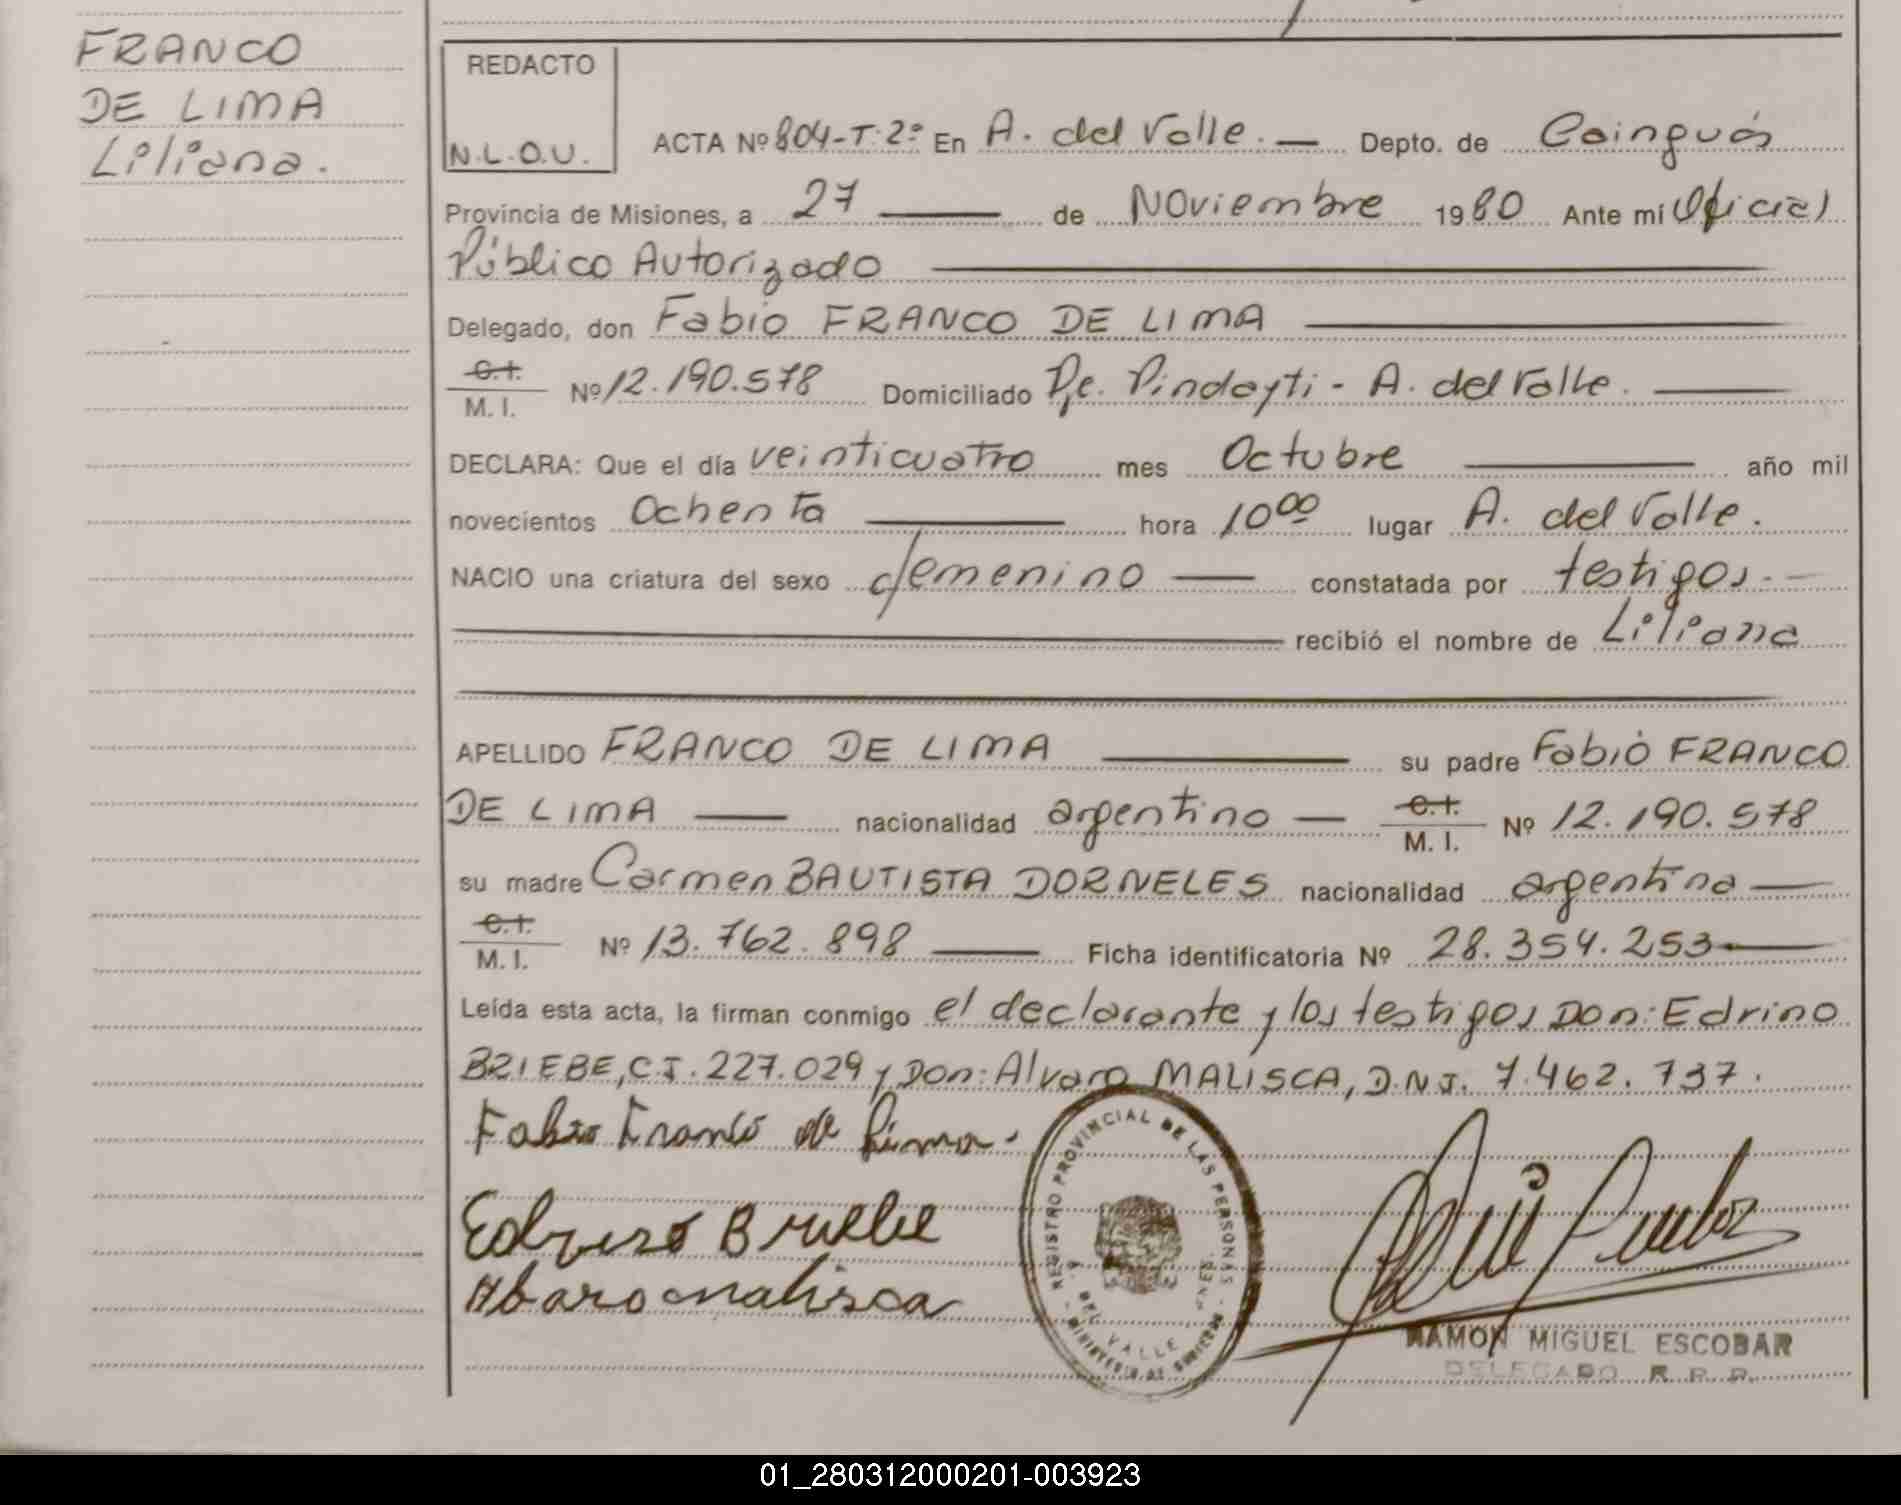 FRANCO
DE LIMA
Liliana.
REDACTO
N.L.O.U.
ACTA Nº 804-T:2º En A. del Valle. — Depto. de Cainguás
Provincia de Misiones, a 27 — de Noviembre 1980 Ante mí Oficial
Público Autorizado —
Delegado, don Fabio FRANCO DE LIMA —
C.I. M. I. Nº 12.190.578 Domiciliado Pje. Pindayti - A. del Valle. —
DECLARA: Que el día veinticuatro mes Octubre — año mil
novecientos Ochenta — hora 10⁰⁰ lugar A. del Valle.
NACIO una criatura del sexo femenino — constatada por testigos. —
— recibió el nombre de Liliana
APELLIDO FRANCO DE LIMA — su padre Fabio FRANCO
DE LIMA — nacionalidad argentino — C.I. M. I. Nº 12.190.578
su madre Carmen BAUTISTA DORNELES nacionalidad argentina —
C.I. M. I. Nº 13.762.898 — Ficha identificatoria Nº 28.354.253 —
Leída esta acta, la firman conmigo el declarante y los testigos Don: Edrino
BRIEBE, C.I. 227.029 y Don: Alvaro MALISCA, D.N.I. 7.462.737.
Fabio Franco de Lima.
Edrino Briebe
Alvaro malisca
REGISTRO PROVINCIAL DE LAS PERSONAS
DEL VALLE
MINISTERIO DE GOBIERNO
RAMON MIGUEL ESCOBAR
DELEGADO R. P. P.
01_280312000201-003923